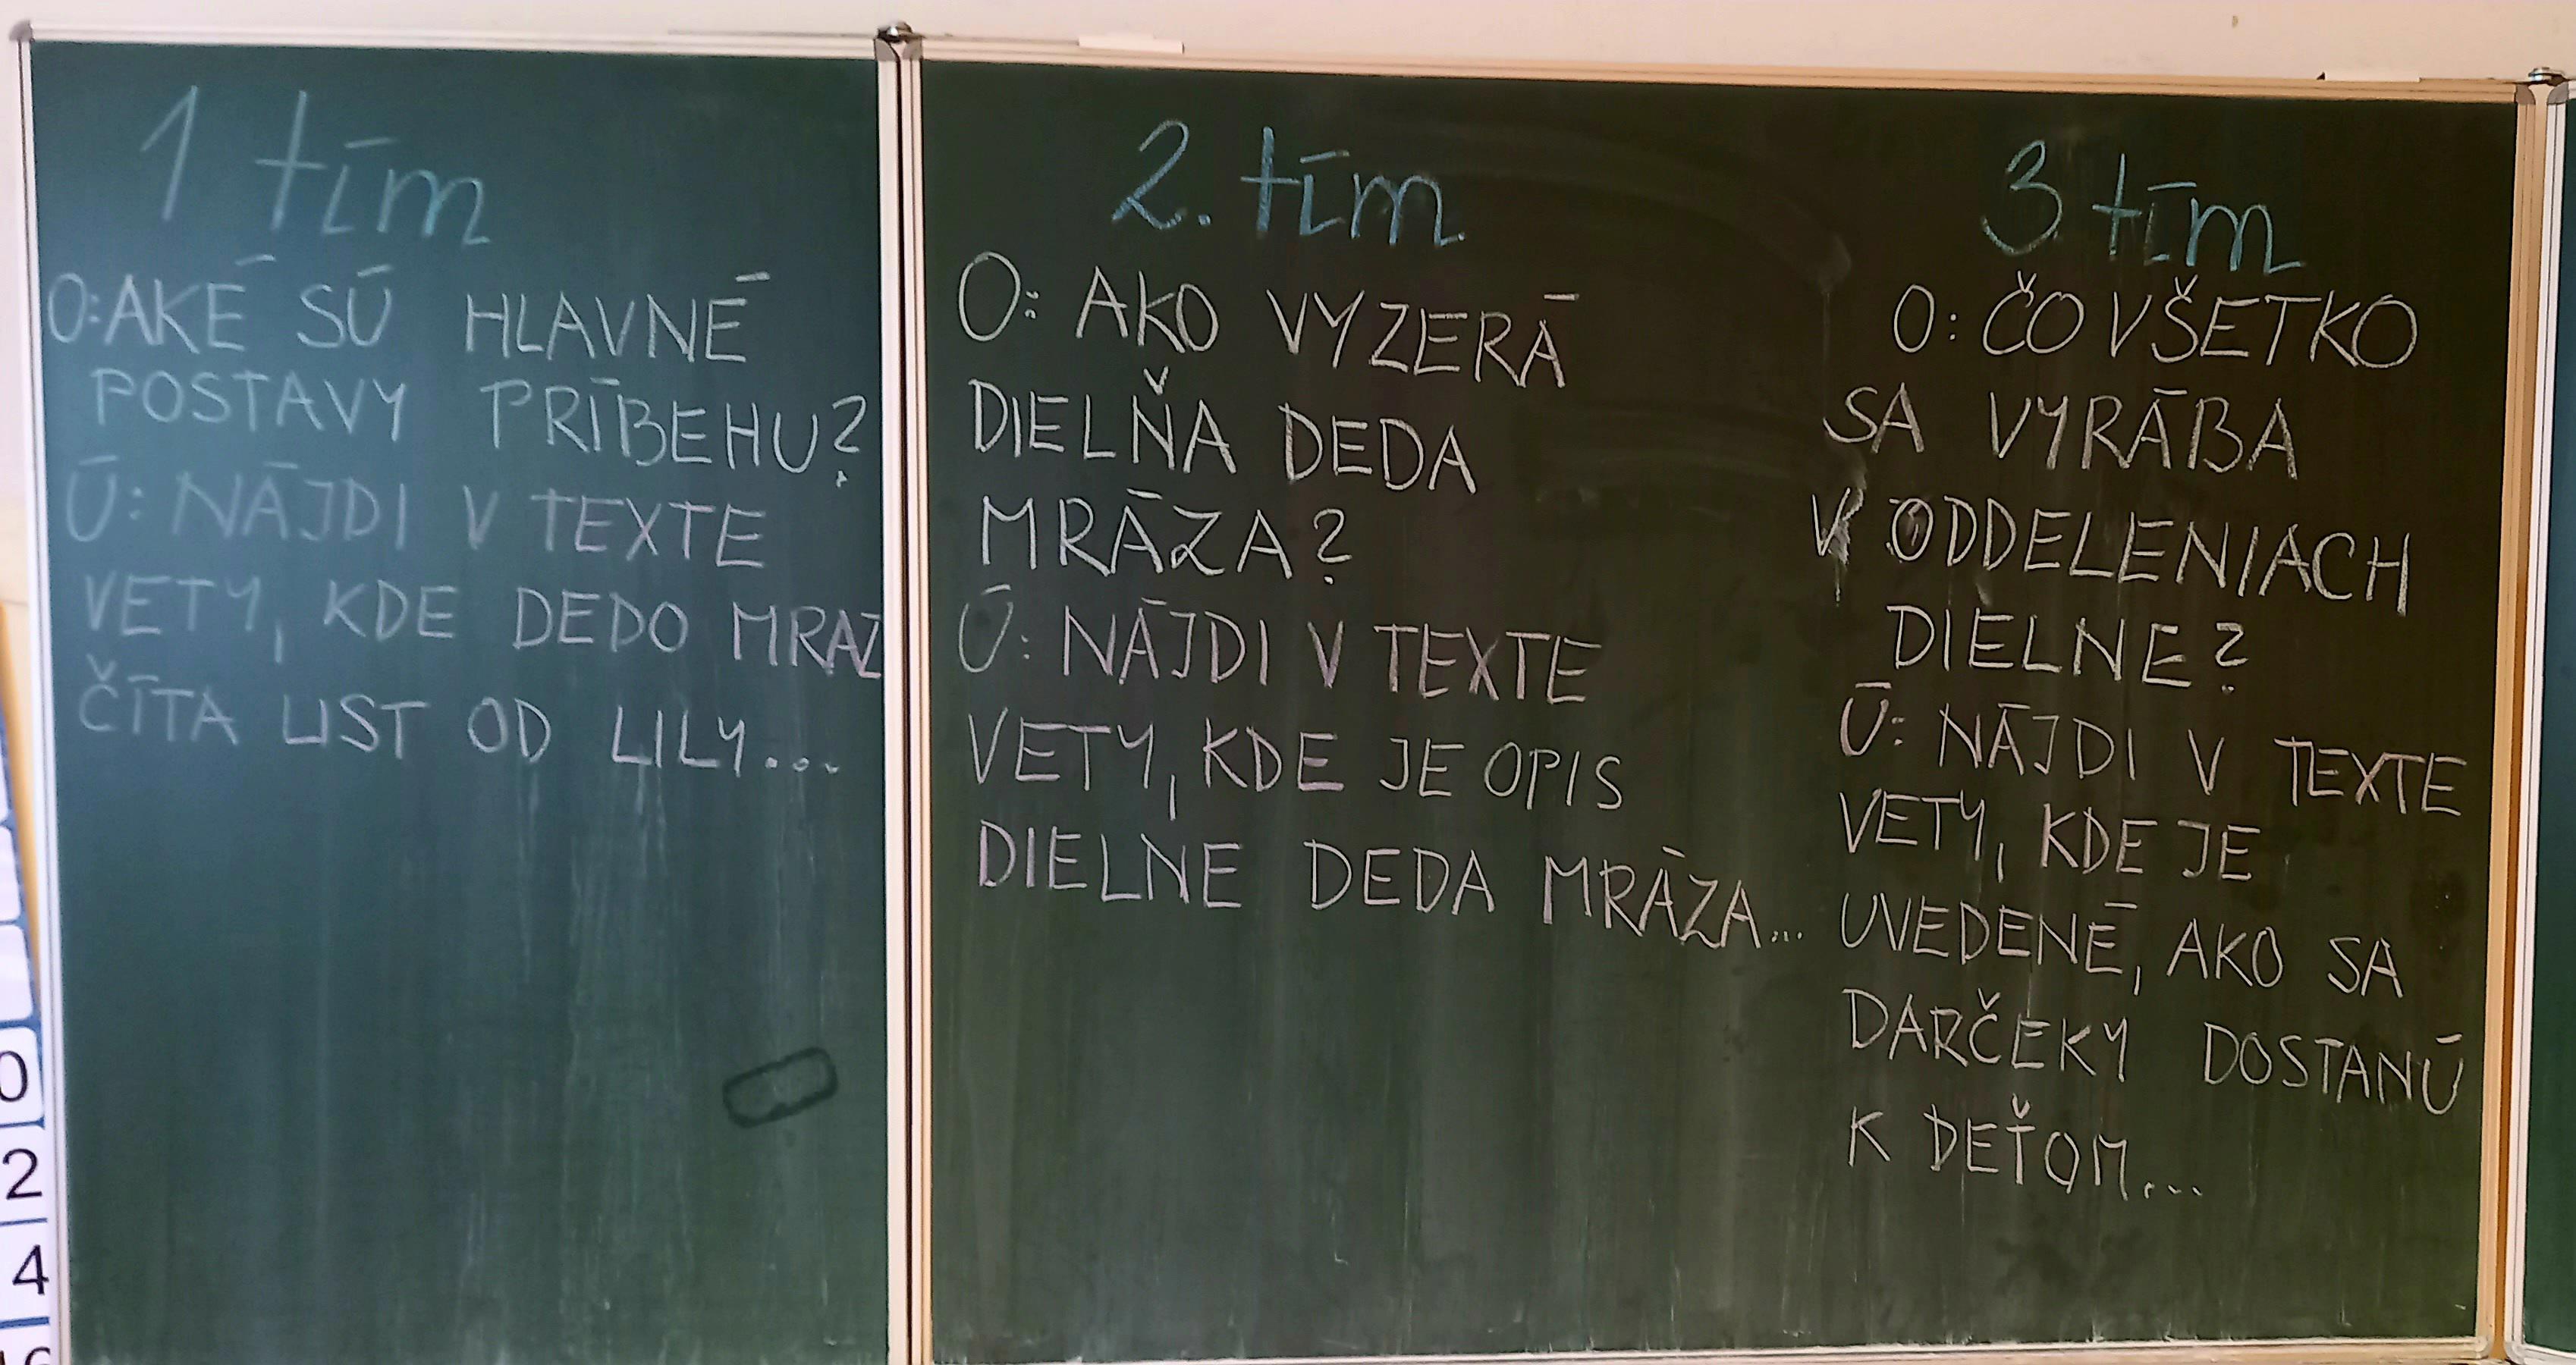 1 tím
O: AKÉ SÚ HLAVNÉ
POSTAVY PRÍBEHU?
Ú: NÁJDI V TEXTE
VETY, KDE DEDO MRAZ
ČÍTA LIST OD LILY...
2. tím
O: AKO VYZERÁ
DIELŇA DEDA
MRÁZA?
Ú: NÁJDI V TEXTE
VETY, KDE JE OPIS
DIELNE DEDA MRÁZA...
3. tím
O: ČO VŠETKO
SA VYRÁBA
V ODDELENIACH
DIELNE?
Ú: NÁJDI V TEXTE
VETY, KDE JE
UVEDENÉ, AKO SA
DARČEKY DOSTANÚ
K DEŤOM...
0
2
4